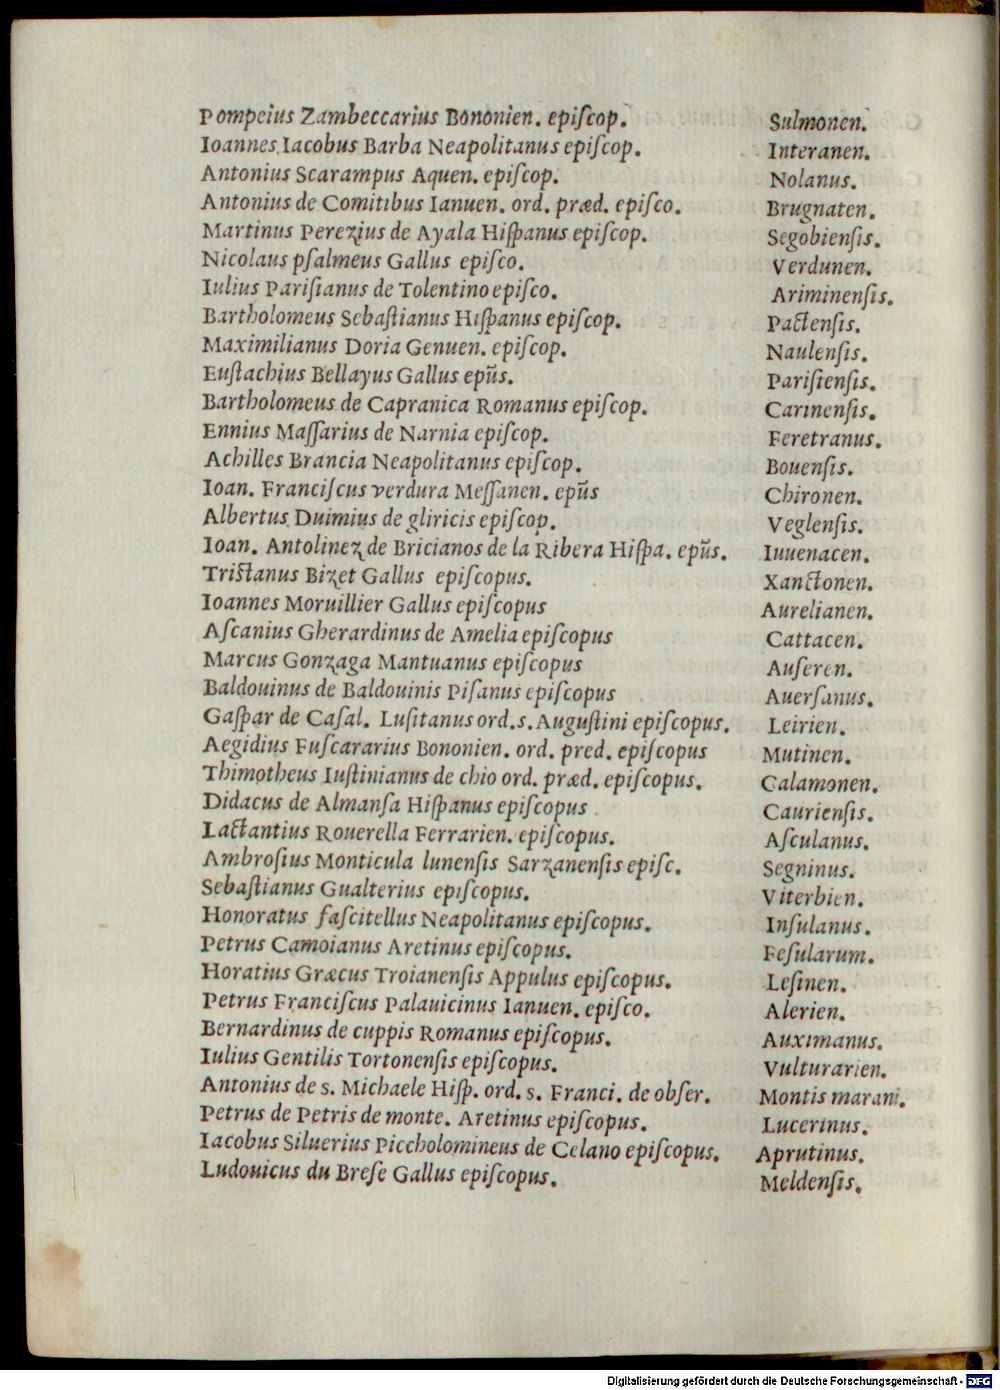 Pompeius Zambeccarius Bononien. epiſcop. Sulmonen.
Ioannes Iacobus Barba Neapolitanus epiſcop. Interanen.
Antonius Scarampus Aquen. epiſcop. Nolanus.
Antonius de Comitibus Ianuen. ord. præd. epiſco. Brugnaten.
Martinus Perezius de Ayala Hiſpanus epiſcop. Segobienſis.
Nicolaus pſalmeus Gallus epiſco. Verdunen.
Iulius Pariſianus de Tolentino epiſco. Ariminenſis.
Bartholomeus Sebaſtianus Hiſpanus epiſcop. Pactenſis.
Maximilianus Doria Genuen. epiſcop. Naulenſis.
Euſtachius Bellayus Gallus epũs. Pariſienſis.
Bartholomeus de Capranica Romanus epiſcop. Carinenſis.
Ennius Maſſarius de Narnia epiſcop. Feretranus.
Achilles Brancia Neapolitanus epiſcop. Bouenſis.
Ioan. Franciſcus verdura Meſſanen. epũs Chironen.
Albertus Duimius de gliricis epiſcop. Veglenſis.
Ioan. Antolinez de Bricianos de la Ribera Hiſpa. epũs. Iuuenacen.
Triſtanus Bizet Gallus epiſcopus. Xanctonen.
Ioannes Moruillier Gallus epiſcopus Aurelianen.
Aſcanius Gherardinus de Amelia epiſcopus Cattacen.
Marcus Gonzaga Mantuanus epiſcopus Auſeren.
Baldouinus de Baldouinis Piſanus epiſcopus Auerſanus.
Gaſpar de Caſal. Luſitanus ord. s. Auguſtini epiſcopus. Leirien.
Aegidius Fuſcararius Bononien. ord. pred. epiſcopus Mutinen.
Thimotheus Iuſtinianus de chio ord. præd. epiſcopus. Calamonen.
Didacus de Almanſa Hiſpanus epiſcopus Caurienſis.
Lactantius Rouerella Ferrarien. epiſcopus. Aſculanus.
Ambroſius Monticula lunenſis Sarzanenſis epiſc. Segninus.
Sebaſtianus Gualterius epiſcopus. Viterbien.
Honoratus faſcitellus Neapolitanus epiſcopus. Inſulanus.
Petrus Camoianus Aretinus epiſcopus. Feſularum.
Horatius Græcus Troianenſis Appulus epiſcopus. Leſinen.
Petrus Franciſcus Palauicinus Ianuen. epiſco. Alerien.
Bernardinus de cuppis Romanus epiſcopus. Auximanus.
Iulius Gentilis Tortonenſis epiſcopus. Vulturarien.
Antonius de s. Michaele Hiſp. ord. s. Franci. de obſer. Montis marani.
Petrus de Petris de monte. Aretinus epiſcopus. Lucerinus.
Iacobus Siluerius Piccholomineus de Celano epiſcopus. Aprutinus.
Ludouicus du Breſe Gallus epiſcopus. Meldenſis.
Digitalisierung gefördert durch die Deutsche Forschungsgemeinschaft - DFG